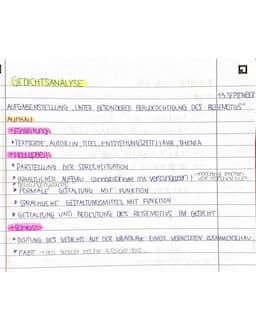 GEDICHTSANALYSE
13. SEPTEMBER
AUFGABENSTELLUNG „UNTER BESONDERER BERÜCKSICHTIGUNG DES REISEMOTIVS"
AUFBAU
→ EINLEITUNG
• TEXTSORTE, AUTOR/IN, TITEL, ENTSTEHUNGSZEIT/JAHR, THEMA
→ HAUPTTEIL
• DARSTELLUNG DER SPRECHSITUATION
• INHALTLICHER AUFBAU (Sinnabschnitte mit Versangaben)
• FORMALE GESTALTUNG MIT FUNKTION
• SPRACHLICHE GESTALTUNGSMITTEL MIT FUNKTION
• GESTALTUNG UND BEDEUTUNG DES REISEMOTIVS IM GEDICHT
→ SCHLUSS
• DEUTUNG DES GEDICHTS AUF DER GRUNDLAGE EINER VERNETZTEN ZUSAMMENSCHAU
• FAZIT → das Gedicht möchte aussagen, dass...